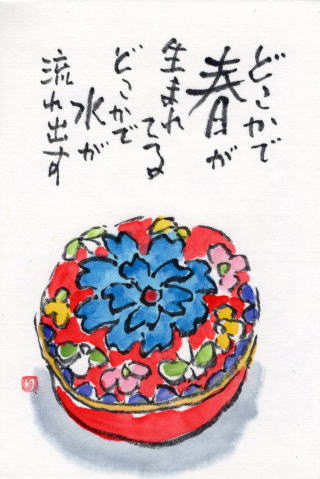 どこかで
春が
生まれ
てる
どこかで
水が
流れ出す